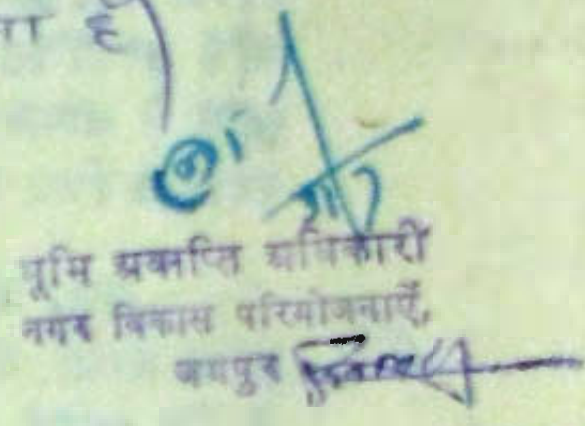 ता है
भूमि अवाप्ति अधिकारी
नगर विकास परियोजनाएँ,
जयपुर